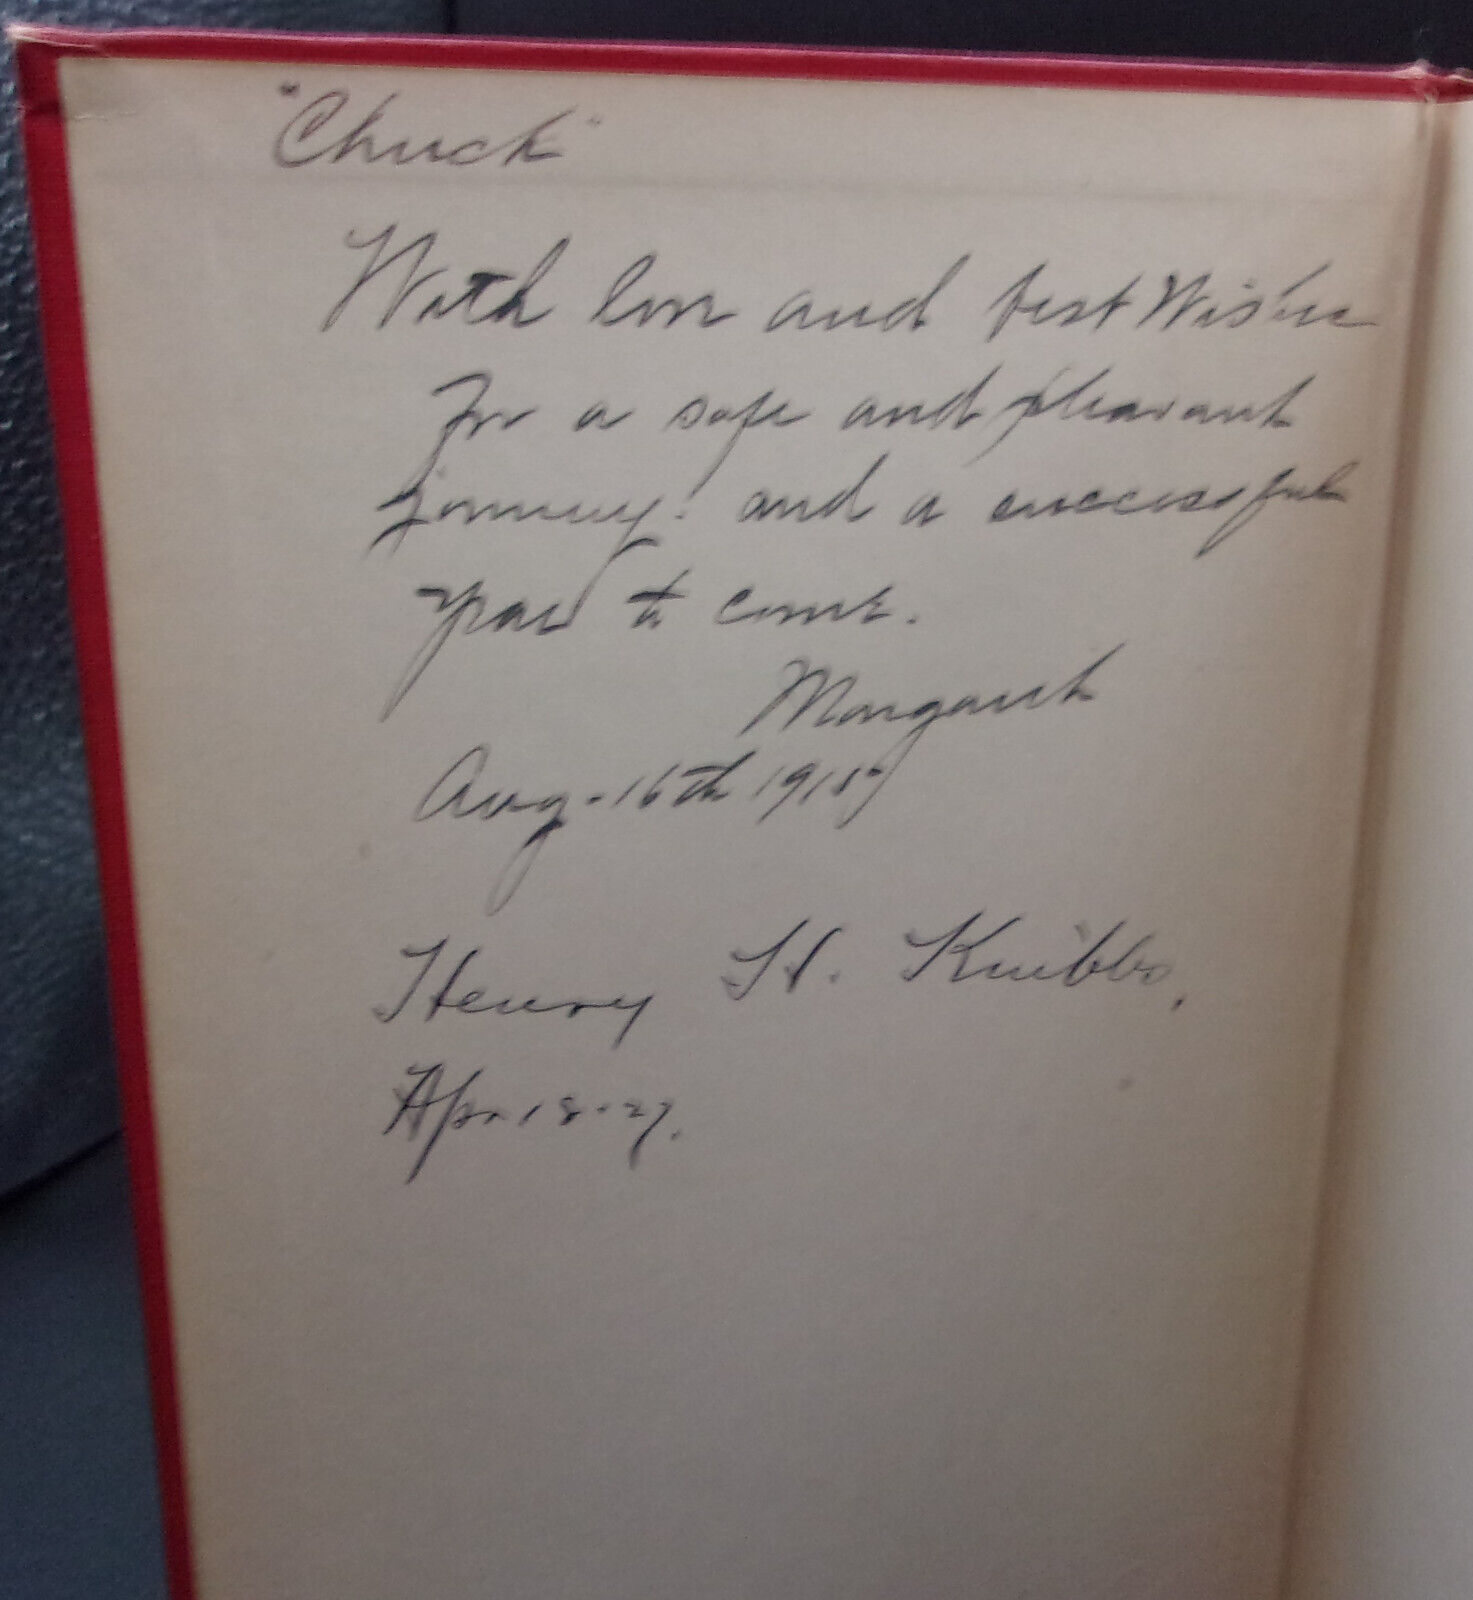 "Chuck"
With love and best Wishes
For a safe and pleasant
journey! and a successful
year to come.
Margaret
Aug. 16th 1915
Henry H. Knibbs,
Apr 18-27.